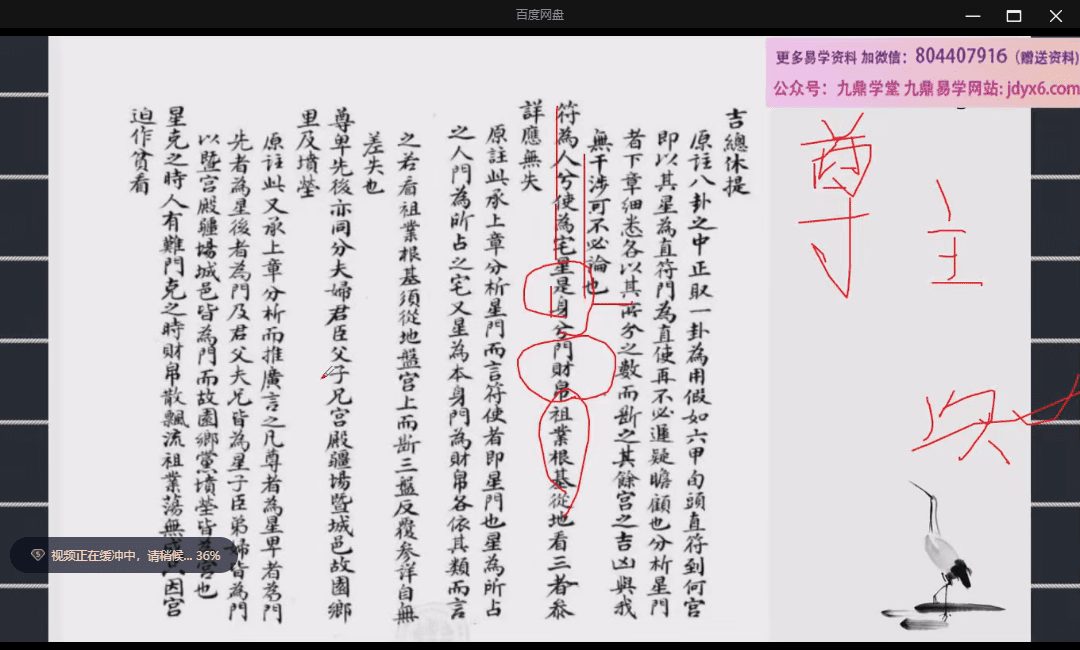 百度网盘
更多易学资料 加微信：804407916（赠送资料）
公众号：九鼎学堂 九鼎易学网站: jdyx6.com
吉總休提
原註八卦之中正取一卦為用假如六甲旬頭直符到何宮
即以其星為直符門為直使再不必遲疑瞻顧也分析星門
者下章細悉各以其所分之數而斷之其餘宮之吉凶與我
無干涉可不必論也
符為人兮使為宅星是身兮門財帛祖業根基從地看三者叅
詳應無失
原註此承上章分析星門而言符使者即星門也星為所占
之人門為所占之宅又星為本身門為財帛各依其類而言
之若看祖業根基須從地盤宮上而斷三盤反覆參詳自無
差失也
尊卑先後亦同分夫婦君臣父子兄宮殿疆場暨城邑故園鄉
里及墳塋
原註此又承上章分析而推廣言之凡尊者為星卑者為門
先者為星後者為門及君父夫兄皆為星子臣弟婦皆為門
以暨宮殿疆場城邑皆為門而故園鄉黨墳塋皆為宮也
星克之時人有難門克之時財帛散飄流祖業蕩無 因宮
迫作貧看
尊
主
视频正在缓冲中，请稍候... 36%